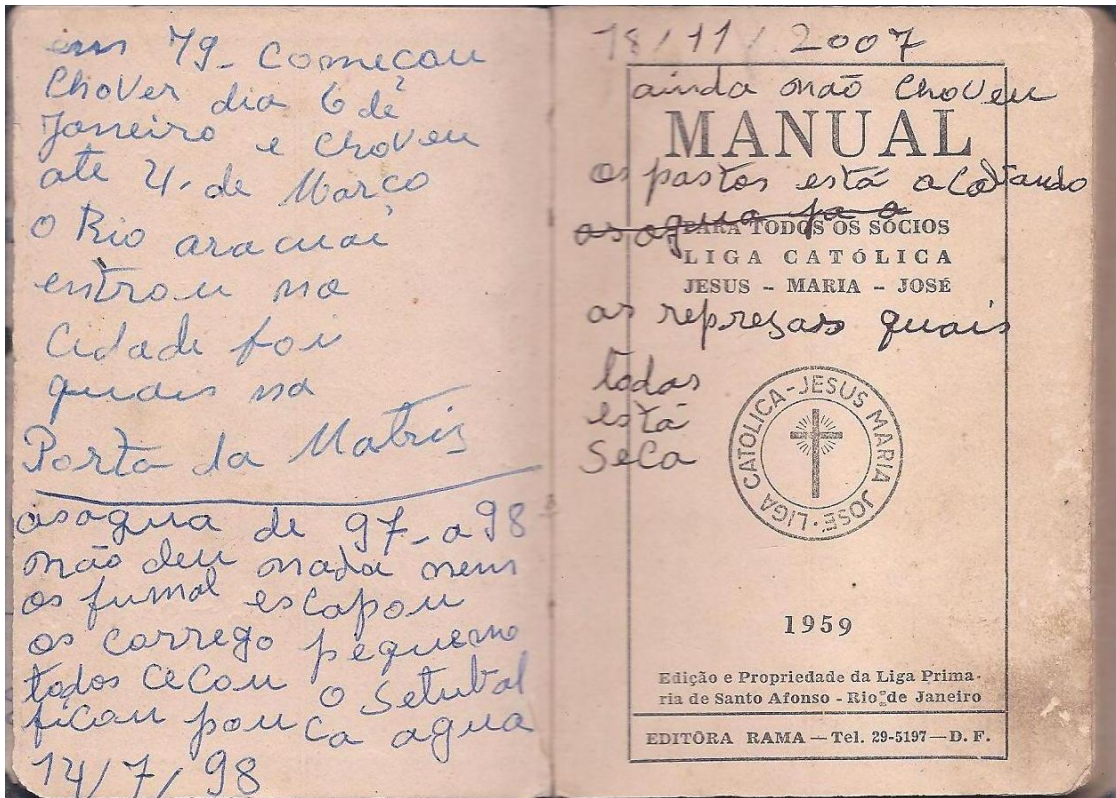 em 79 - Começau
Chover dia 6 de
Janeiro e choveu
ate 4. de Março
O Rio aracuai
entrou na
Cidade foi
quais na
Porta da Matris
as agua de 97-a 98
não deu nada nem
os fumal escapou
os corrego pequeno
todos cecou o Setubal
ficou pouca agua
14/7/98
18/11/2007
ainda não choveu
MANUAL
os pastos está acabando
as agua
PARA TODOS OS SÓCIOS
LIGA CATÓLICA
JESUS - MARIA - JOSÉ
as represas quais
todas
está
Seca
LIGA CATOLICA-JESUS MARIA JOSÉ·
1959
Edição e Propriedade da Liga Prima-
ria de Santo Afonso - Rio de Janeiro
EDITÔRA RAMA — Tel. 29-5197 — D. F.